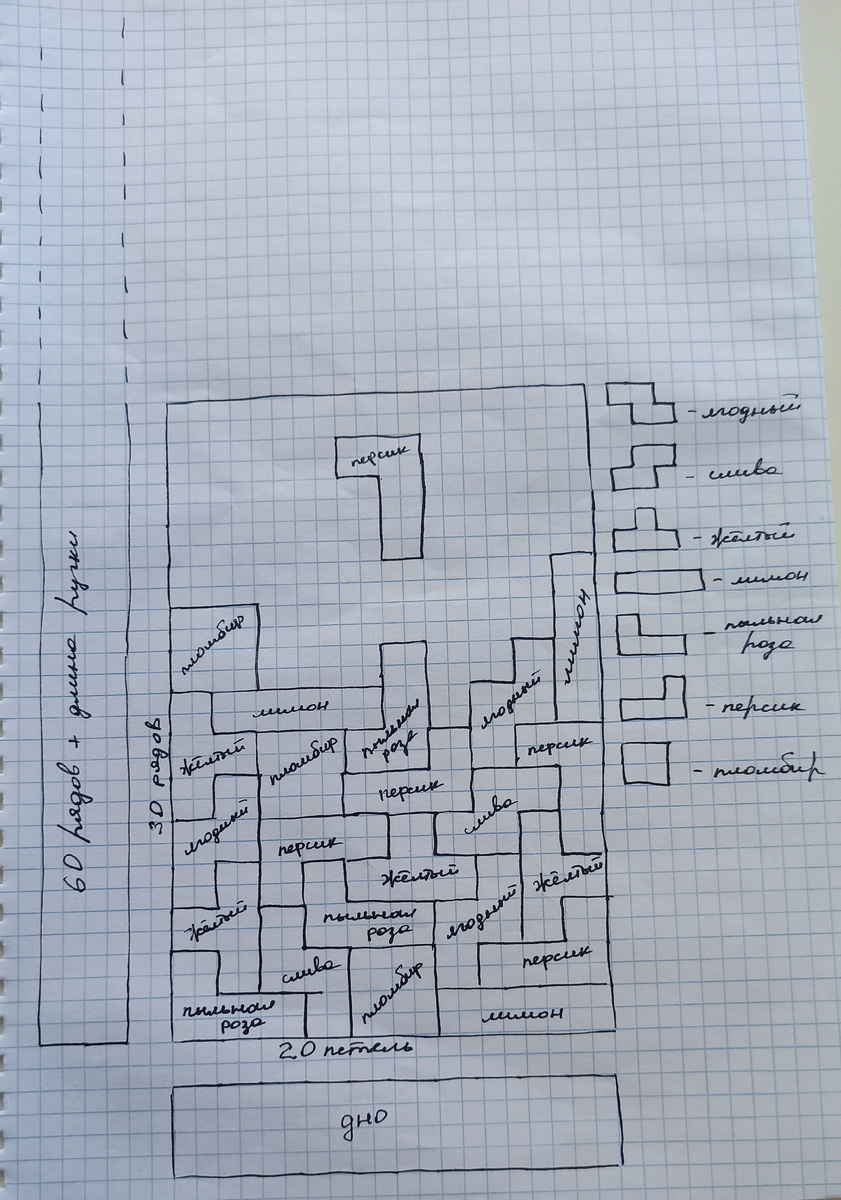 60 рядов + длина ручки
30 рядов
персик
пломбир
лимон
лимон
жёлтый
пломбир
пыльная
роза
ягодный
персик
персик
ягодный
слива
персик
жёлтый
жёлтый
жёлтый
пыльная
роза
ягодный
слива
пломбир
персик
пыльная
роза
лимон
20 петель
дно
- ягодный
- слива
- жёлтый
- лимон
- пыльная
роза
- персик
- пломбир